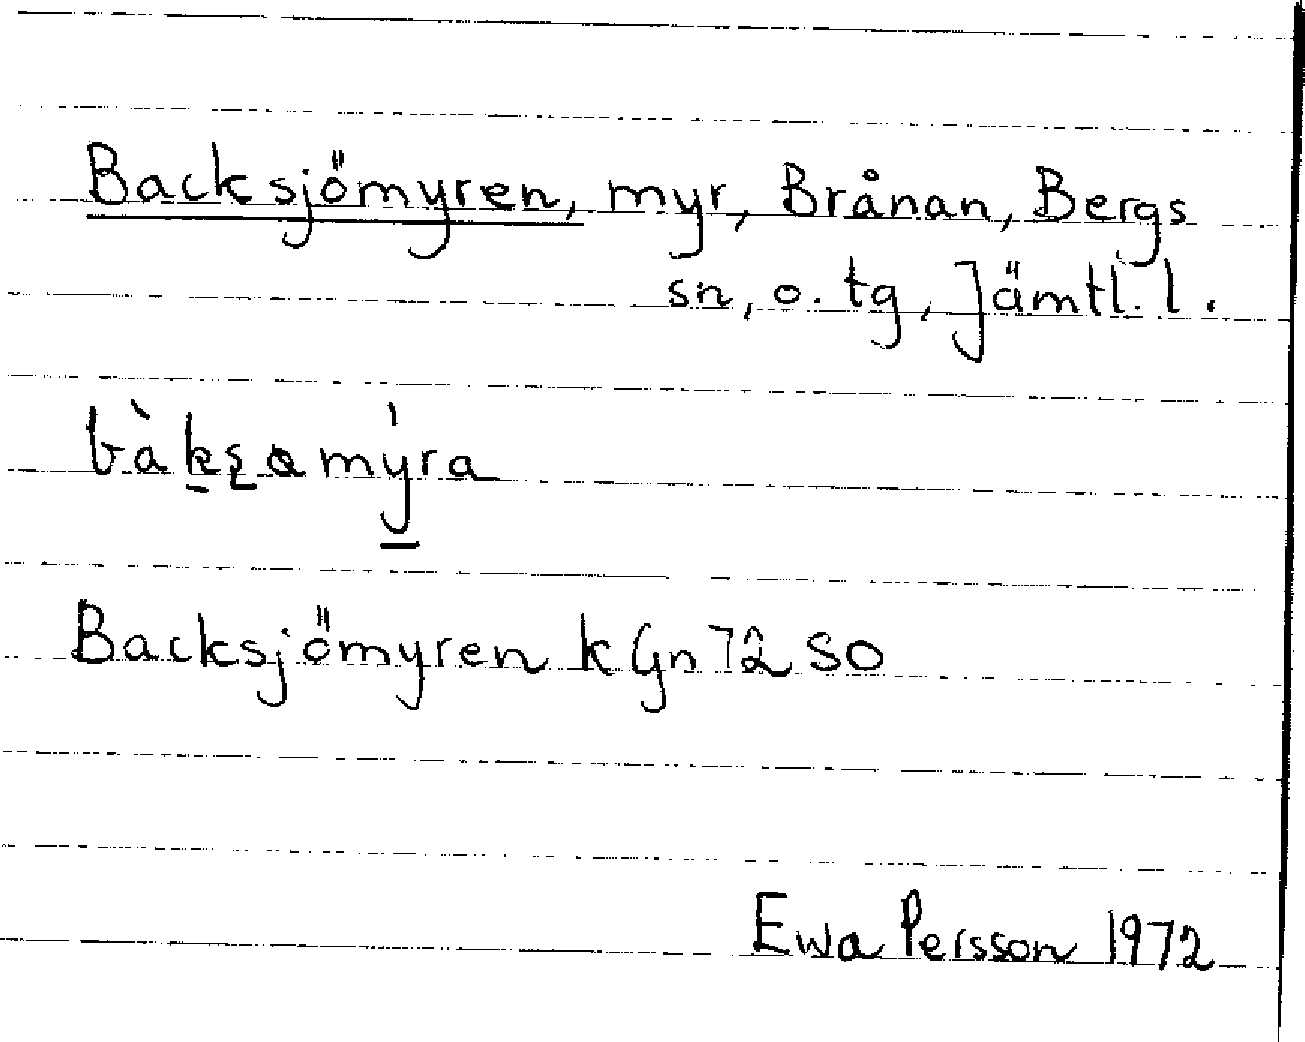 Backsjömyren, myr, Brånan, Bergs
sn, o. tg, Jämtl. l.
Backsjömyren k Gn 72 SO
Ewa Persson 1972